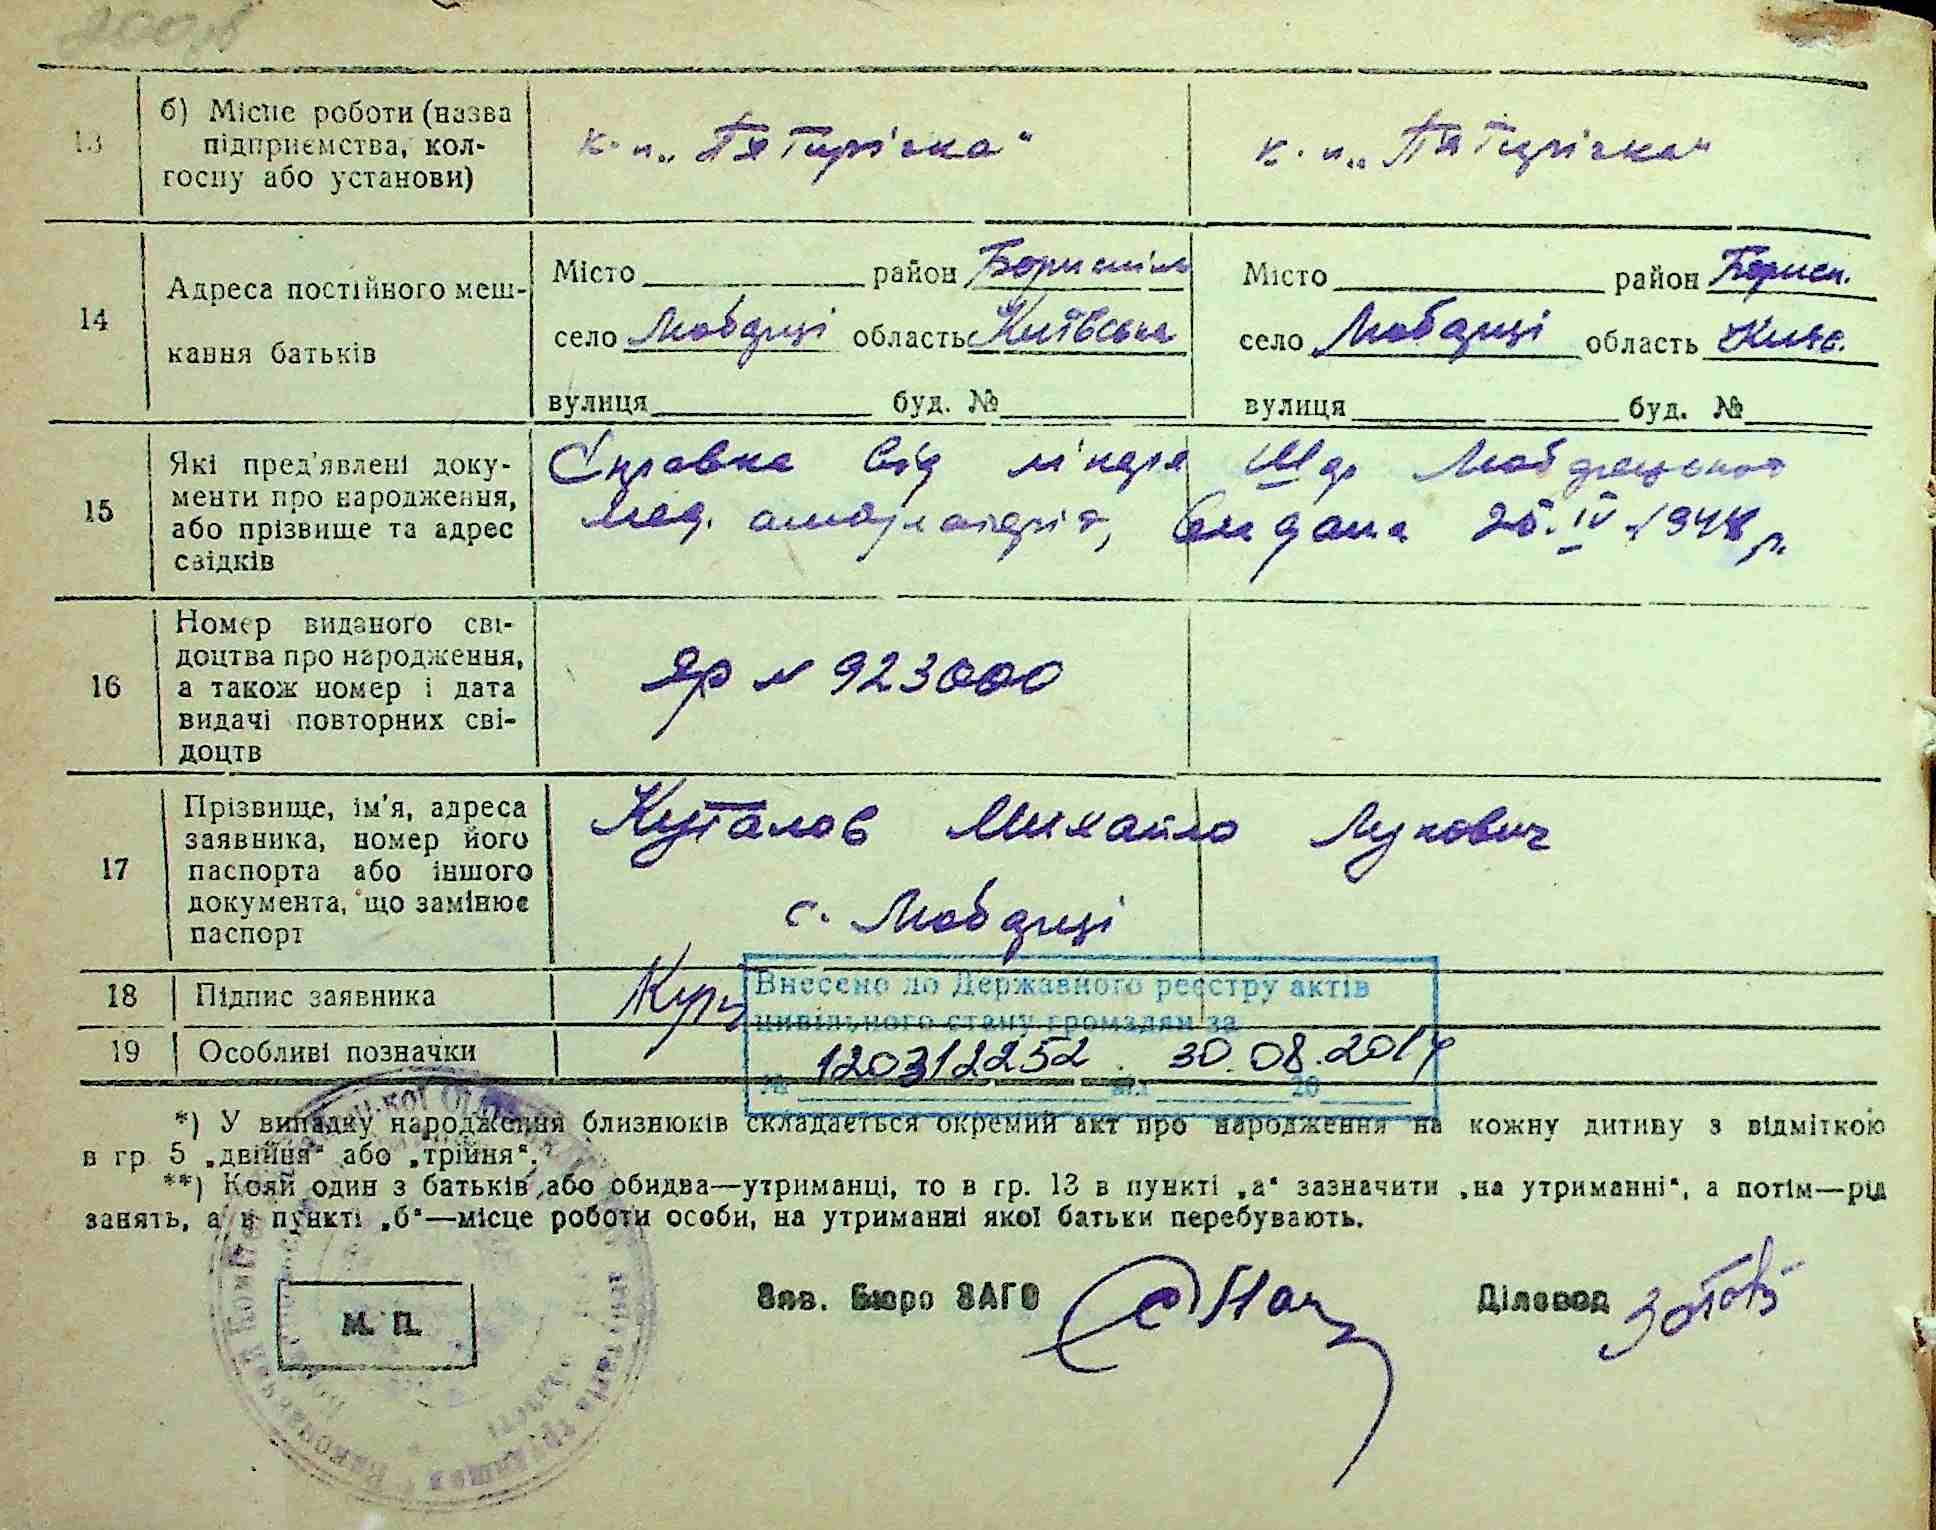 13
б) Місце роботи (назва
підприємства, кол-
госпу або установи)
к-п „Пятирічка“
к-п „Пятирічка“
14
Адреса постійного меш-
кання батьків
Місто район Бориспіль
село Любарці область Київська
вулиця буд. №
Місто район Борисп.
село Любарці область Київ.
вулиця буд. №
15
Які пред'явлені доку-
менти про народження,
або прізвище та адрес
свідків
Справка від лікаря Любарецької
Мед. амбулаторія, видана 25.IV 1948 р.
16
Номер виданого сві-
доцтва про народження,
а також номер і дата
видачі повторних сві-
доцтв
ЯР № 923000
17
Прізвище, ім'я, адреса
заявника, номер його
паспорта або іншого
документа, що замінює
паспорт
Куталов Михайло Лукович
с. Любарці
18
Підпис заявника
19
Особливі позначки
Внесено до Державного реєстру актів
цивільного стану громадян за
№ 120312252 від 30.08.2014
*) У випадку народження близнюків складається окремий акт про народження на кожну дитину з відміткою
в гр 5 „двійня“ або „трійня“.
**) Коли один з батьків або обидва—утриманці, то в гр. 13 в пункті „а“ зазначити „на утриманні“, а потім—рід
занять, а в пункті „б“—місце роботи особи, на утриманні якої батьки перебувають.
М. П.
Зав. Бюро ЗАГС
Діловод